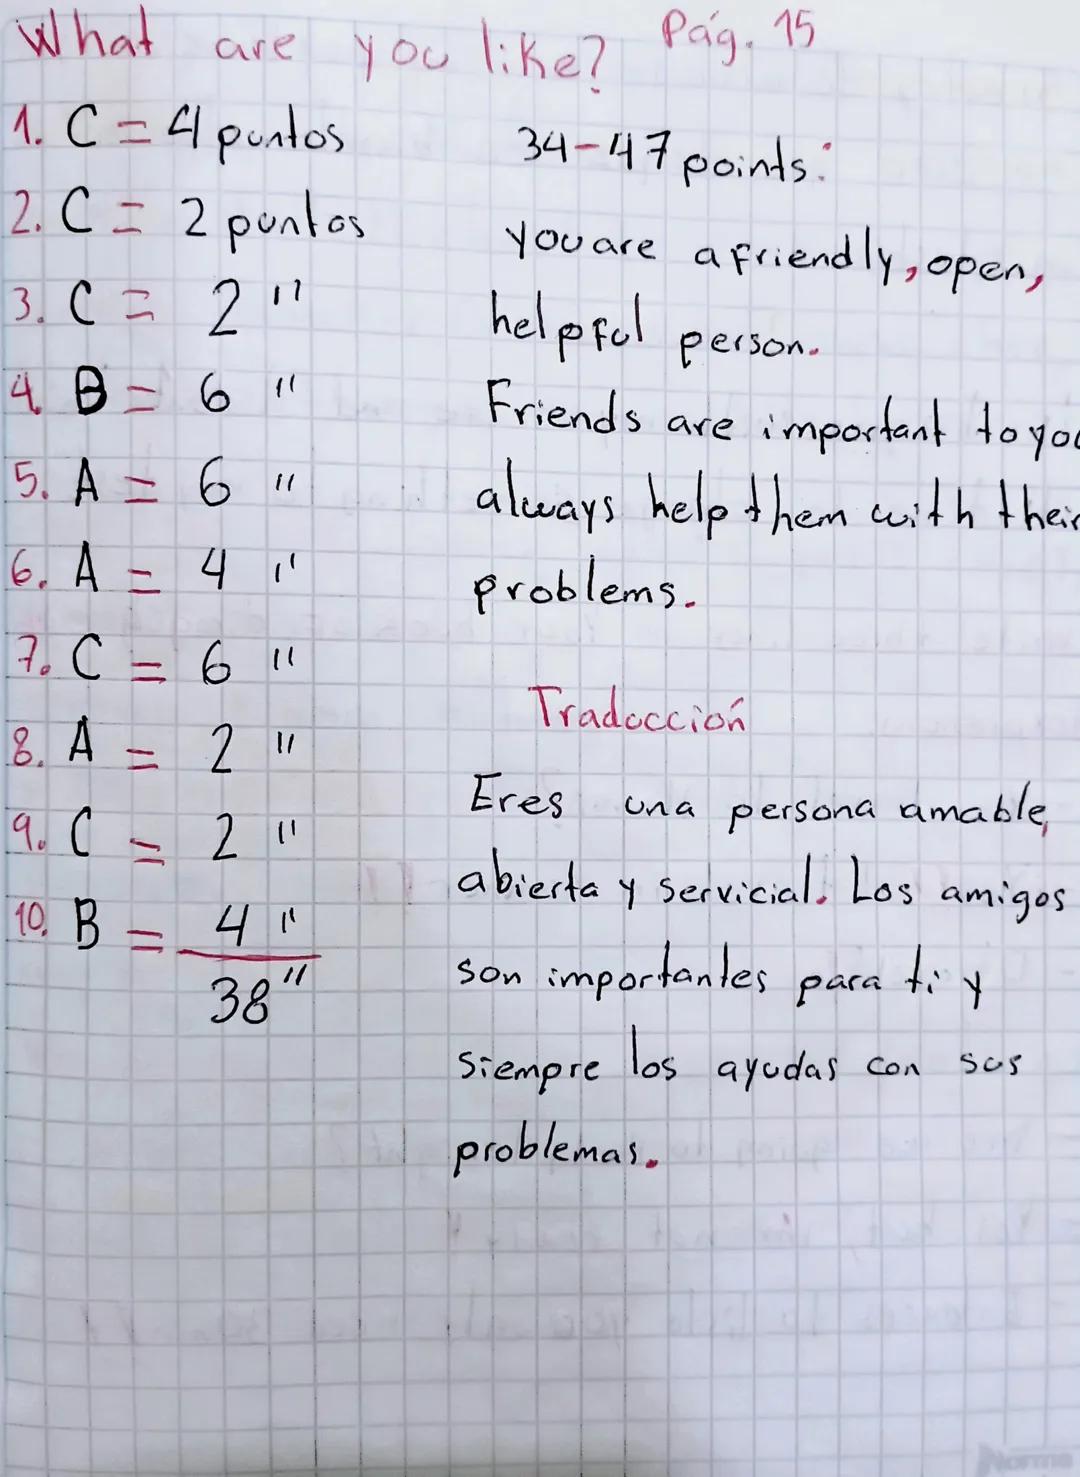 What are you like? Pág. 15
1. C = 4 puntos
2. C = 2 puntos
3. C = 2 "
4. B = 6 "
5. A = 6 "
6. A = 4 "
7. C = 6 "
8. A = 2 "
9. C = 2 "
10. B = 4 "
38 "
34-47 points:
you are a friendly, open,
helpful person.
Friends are important to you
always help them with their
problems.
Traducción
Eres una persona amable,
abierta y servicial. Los amigos
son importantes para ti y
siempre los ayudas con sus
problemas.
Norma